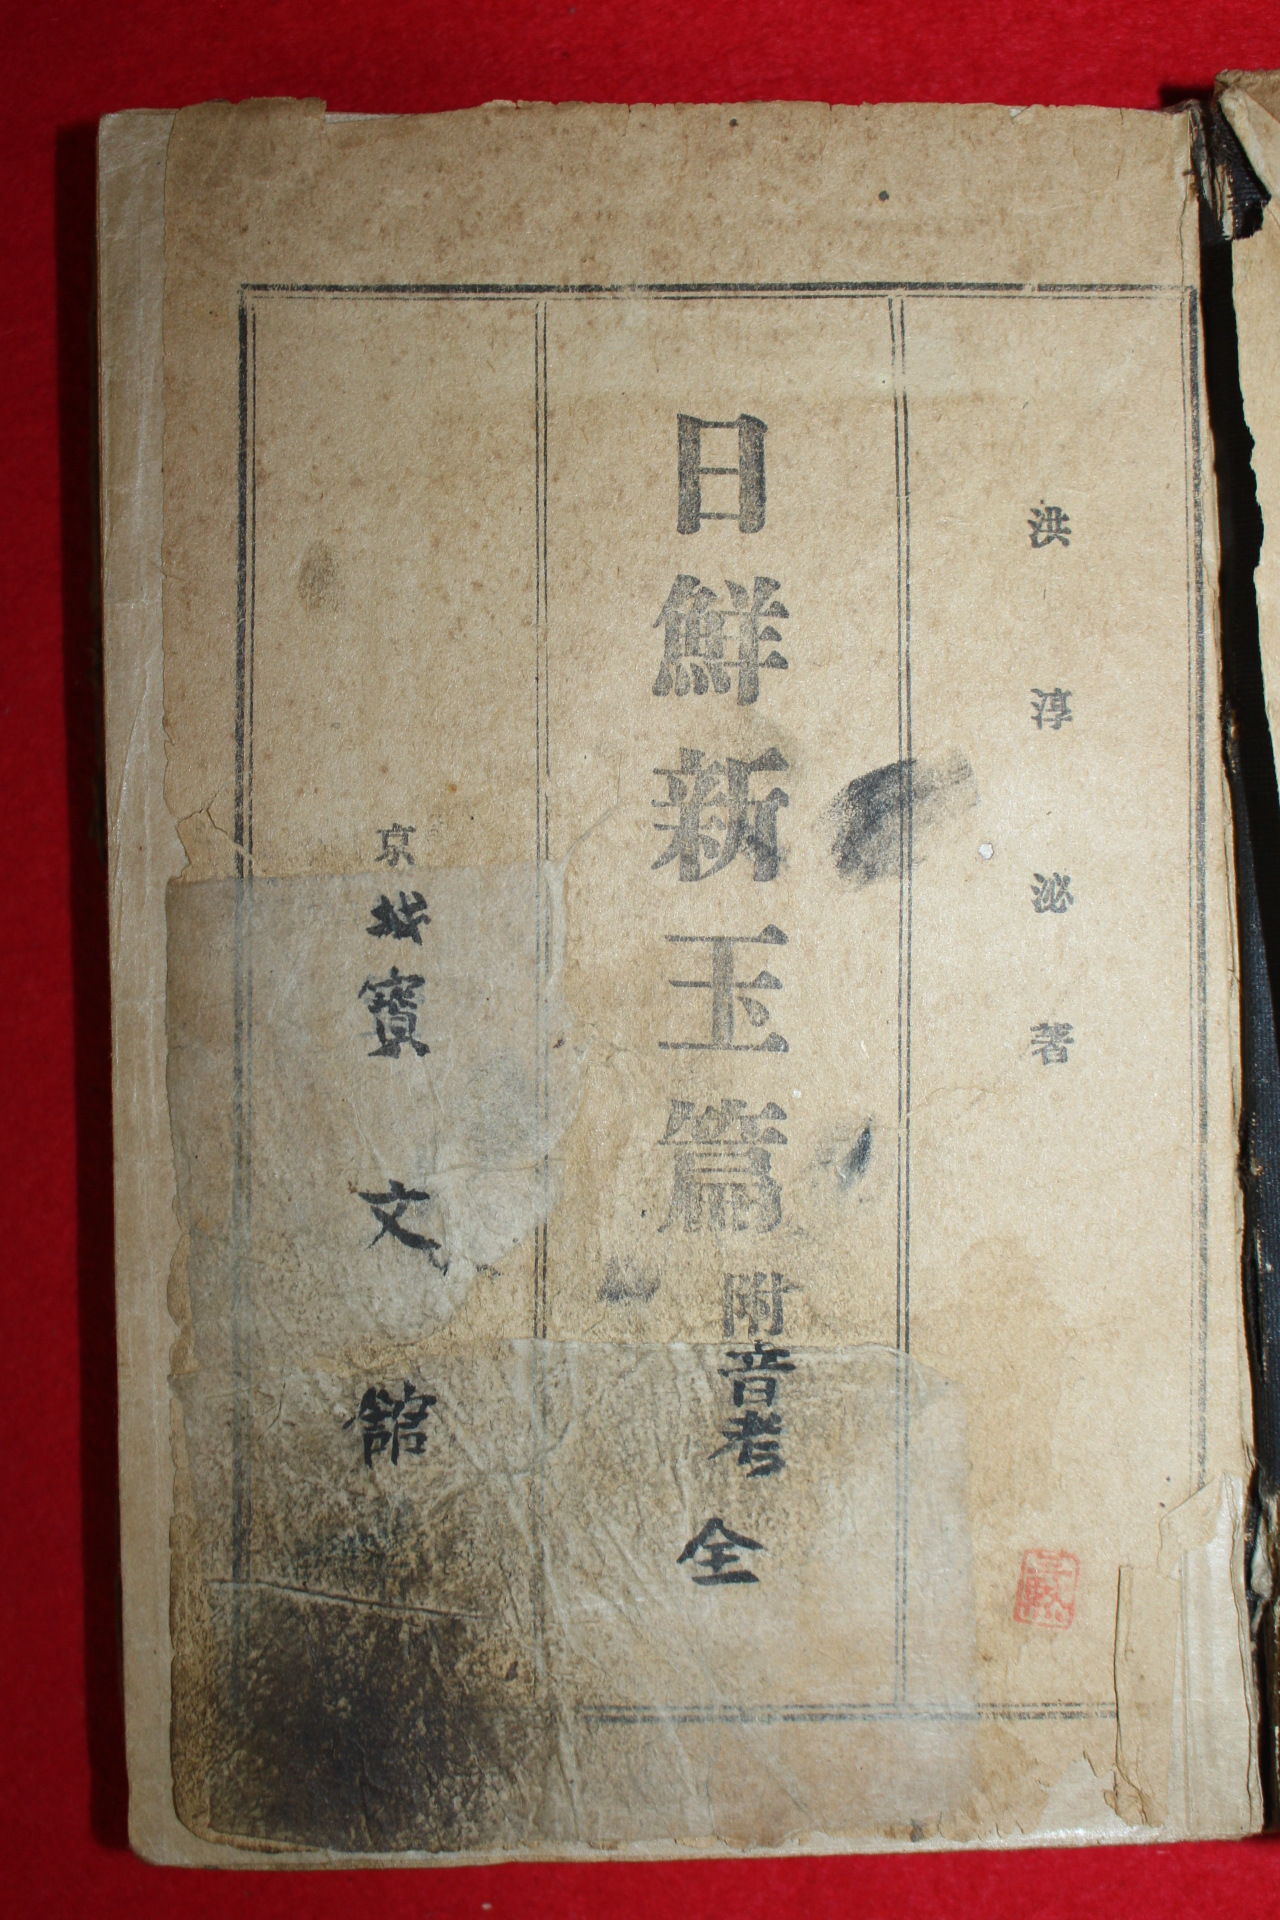 洪淳泌著
日鮮新玉篇附音考全
京城寶文館